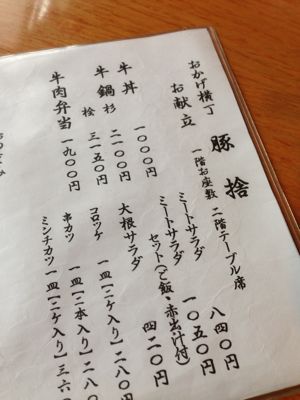 おかげ横丁 豚捨
お献立 一階お座敷・二階テーブル席
牛丼 一〇〇〇
牛鍋 杉 二一〇〇
桧 三一五〇
牛肉弁当 一九〇〇
ミートサラダ 八四〇
ミートサラダ
セット(ご飯・赤出汁付) 一〇五〇
大根サラダ 四二〇
コロッケ 一皿【二ケ入り】二八〇
串カツ 一皿【二本入り】二八
ミンチカツ 一皿【二ケ入り】三六